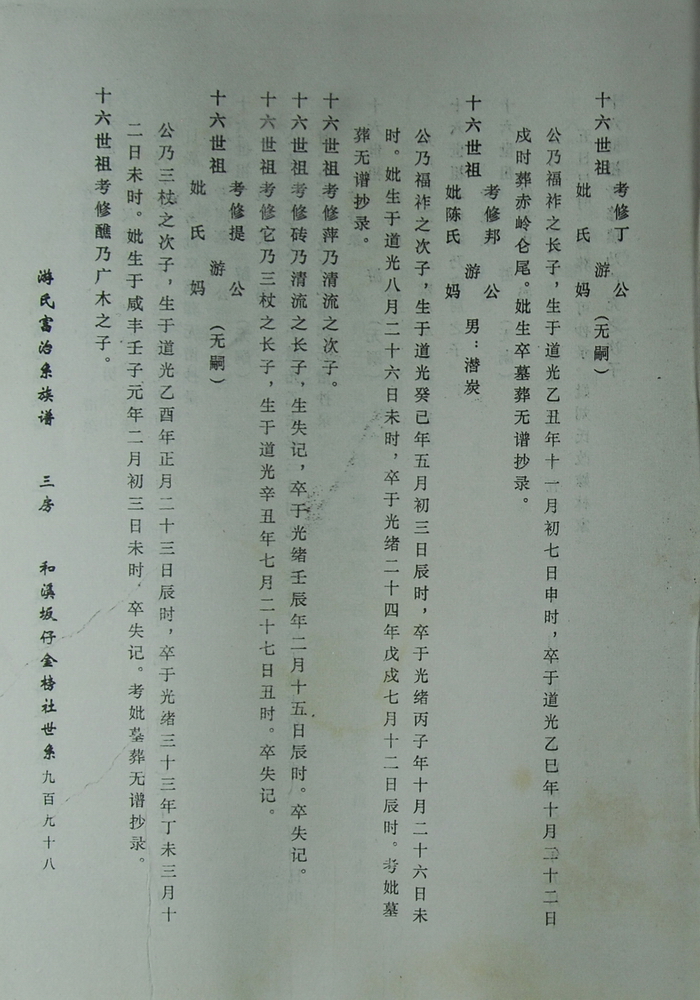 十六世祖 考修丁 妣氏 游 公 妈 （无嗣）
公乃福祚之长子，生于道光乙丑年十一月初七日申时，卒于道光乙巳年十月二十二日
戌时葬赤岭仑尾。妣生卒墓葬无谱抄录。
十六世祖 考修邦 妣陈氏 游 公 妈 男：潜炭
公乃福祚之次子，生于道光癸己年五月初三日辰时，卒于光绪丙子年十月二十六日未
时。妣生于道光八月二十六日未时，卒于光绪二十四年戊戌七月十二日辰时。考妣墓
葬无谱抄录。
十六世祖考修萍乃清流之次子。
十六世祖考修砖乃清流之长子，生失记，卒于光绪壬辰年二月十五日辰时。卒失记。
十六世祖考修它乃三杖之长子，生于道光辛丑年七月二十七日丑时。卒失记。
十六世祖 考修提 妣氏 游 公 妈 （无嗣）
公乃三杖之次子，生于道光乙酉年正月二十三日辰时，卒于光绪三十三年丁未三月十
二日未时。妣生于咸丰壬子元年二月初三日未时，卒失记。考妣墓葬无谱抄录。
十六世祖考修醮乃广木之子。
游氏富治系族谱 三房 和溪坂仔金榜社世系九百九十八